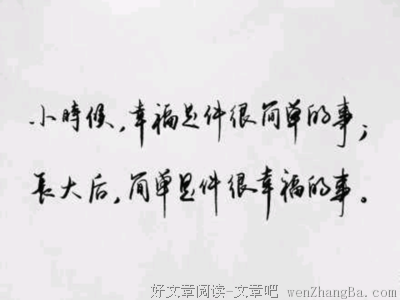 小時候,幸福是件很简单的事;
長大后,简单是件很幸福的事。
好文章阅读-文章吧 wenZhangBa.com